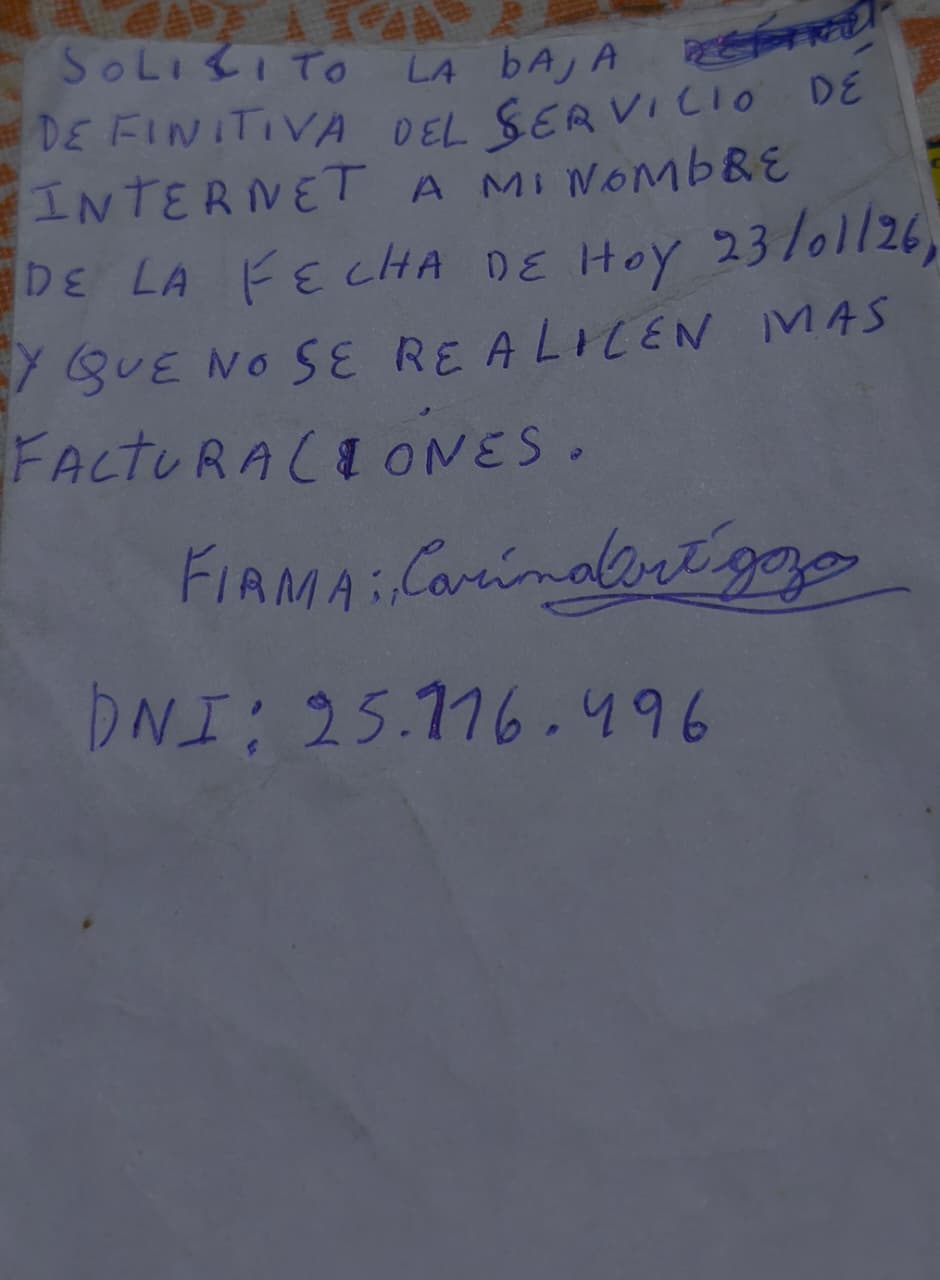 SOLICITO LA BAJA
DEFINITIVA DEL SERVICIO DE
INTERNET A MI NOMBRE
DE LA FECHA DE HOY 23/01/26,
Y QUE NO SE REALICEN MAS
FACTURACIONES.
FIRMA: Carina Cortigozo
DNI: 25.776.496